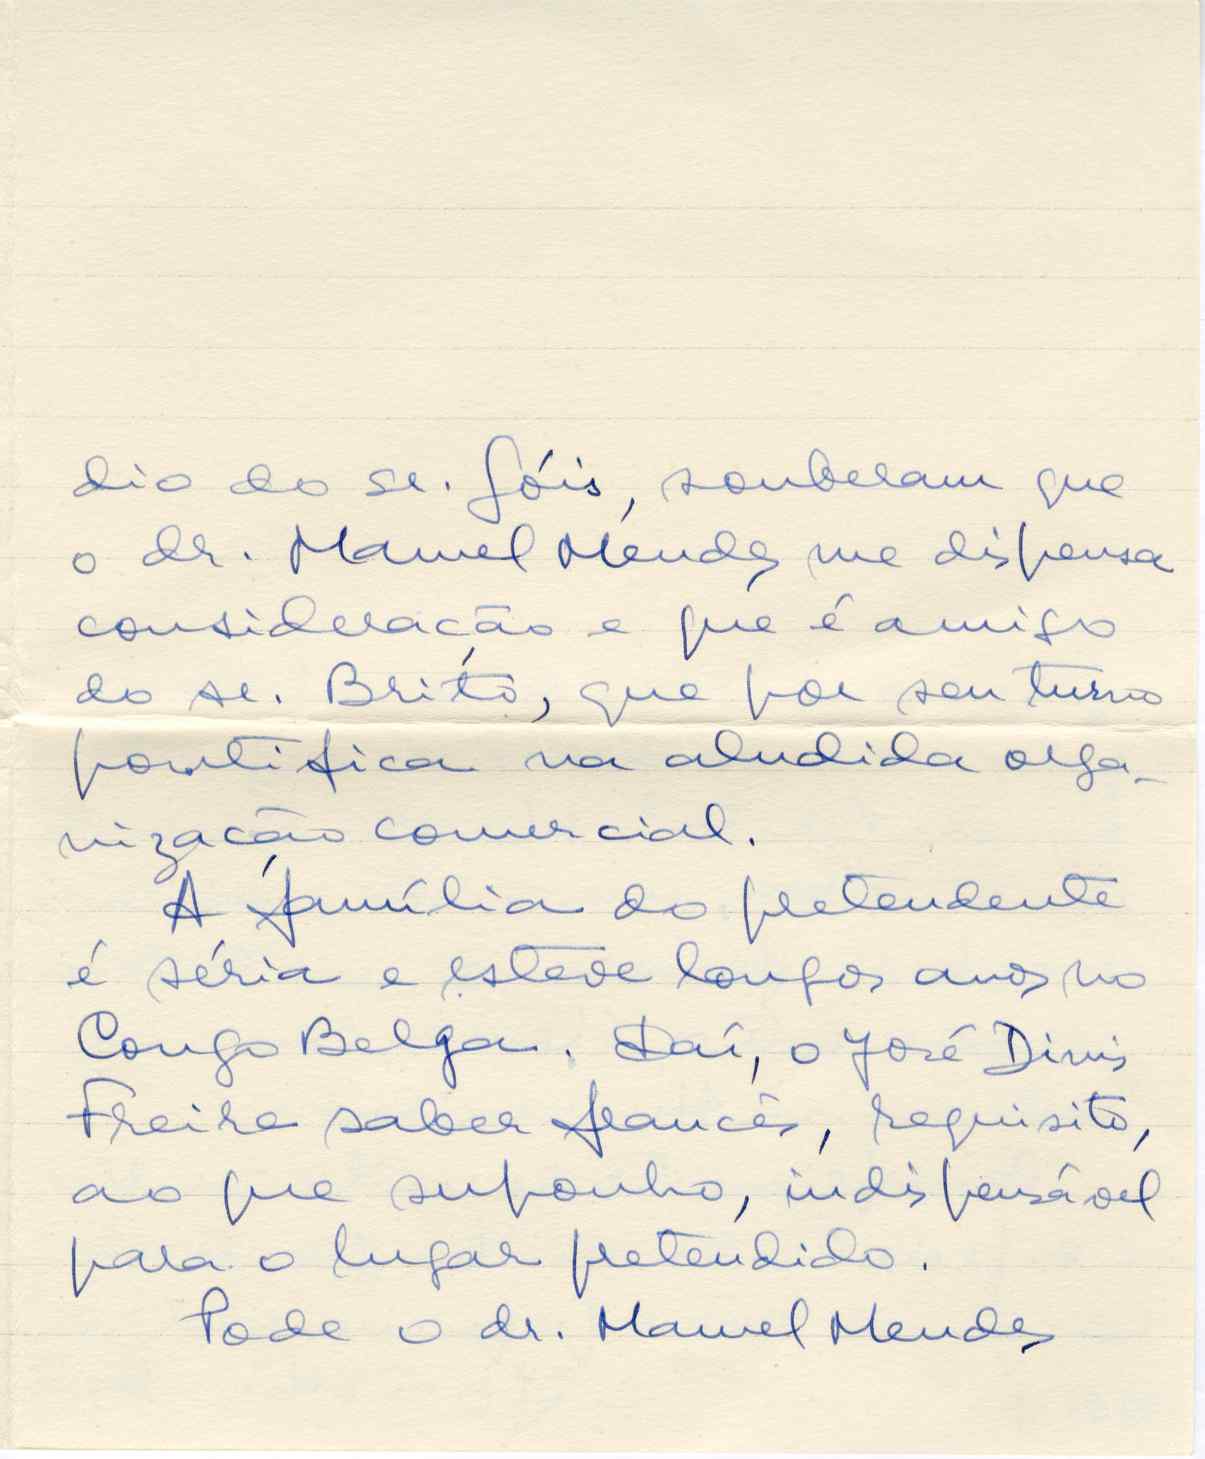 dio do sr. Góis, souberam que
o dr. Manuel Mendes me dispensa
consideração e que é amigo
do sr. Brito, que por seu turno
pontifica na aludida orga-
nização comercial.
A família do pretendente
é séria e esteve longos anos no
Congo Belga. Daí, o José Dinis
Freire saber francês, requisito,
ao que suponho, indispensável
para o lugar pretendido.
Pode o dr. Manuel Mendes